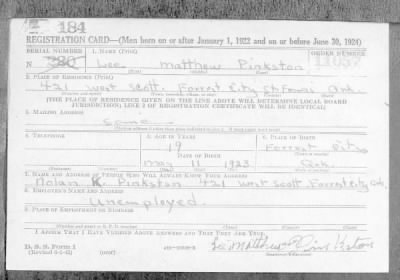 184
REGISTRATION CARD—(Men born on or after January 1, 1922 and on or before June 30, 1924)
SERIAL NUMBER
1. NAME (Print)
ORDER NUMBER
N 380 Lee Matthew Pinkston
(First) (Middle) (Last)
2. PLACE OF RESIDENCE (Print)
421 West Scott. Forrest City St. Francis Ark.
(THE PLACE OF RESIDENCE GIVEN ON THE LINE ABOVE WILL DETERMINE LOCAL BOARD
JURISDICTION; LINE 2 OF REGISTRATION CERTIFICATE WILL BE IDENTICAL)
3. MAILING ADDRESS
Same
4. TELEPHONE
5. AGE IN YEARS
6. PLACE OF BIRTH
19
Forrest City
DATE OF BIRTH
May 11 1923
Ark
7. NAME AND ADDRESS OF PERSON WHO WILL ALWAYS KNOW YOUR ADDRESS
Nolan K. Pinkston 421 West Scott Forrest City Ark.
8. EMPLOYER'S NAME AND ADDRESS
Unemployed.
9. PLACE OF EMPLOYMENT OR BUSINESS
I AFFIRM THAT I HAVE VERIFIED ABOVE ANSWERS AND THAT THEY ARE TRUE.
D. S. S. Form 1
(over)
Lee Matthew Pinkston